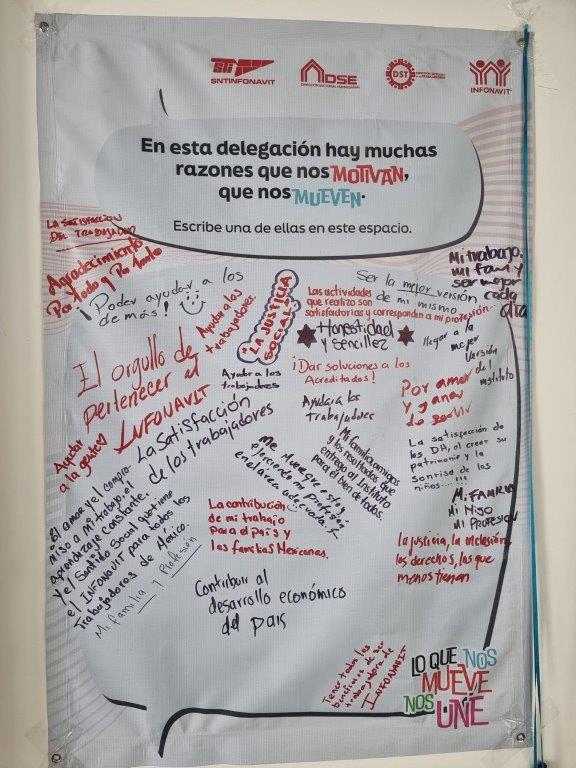 SNTINFONAVIT
DSE
DST
INFONAVIT
En esta delegación hay muchas
razones que nos MOTIVAN,
que nos MUEVEN.
Escribe una de ellas en este espacio.
LA SATISFACCION
DEL TRABAJADOR
Agradecimiento
Por todo y Por tanto
¡Poder ayudar a los
de más!
Ayudar a los
trabajadores.
¡LA JUSTICIA
SOCIAL!
Las actividades
que realizo son
satisfactorias y corresponden a mi profesión.
Ser la mejor versión
de mi mismo
Mi trabajo,
mi fam y
ser mejor
cada
día
Honestidad
y sencillez
llegar a la
mejor
Versión
del
instituto
El orgullo de
pertenecer al
INFONAVIT
Ayudar a los
trabajadores
¡Dar soluciones a los
Acreditados!
Ayudar a los
trabajadores
Por amor
y ganas
de servir
La Satisfacción
de los trabajadores
Ayudar
a la gente
La satisfacción de
los DH, al crear su
patrimonio y la
sonrisa de los
niños...!!!
Mi familia, amigos
y los resultados que
entrego al Instituto
para el bien de todos.
Me Mueve
ejerciendo mi profesión
MI FAMILIA
MI HIJO
MI PROFESIÓN
El amor y el compro-
miso a mi trabajo, el
aprendizaje constante,
y el Sentido Social que tiene
el INFONAVIT para todos los
trabajadores de México.
Mi familia y Profesión
La contribución
de mi trabajo
para el país y
las familias Mexicanas.
la justicia, la inclusión,
los derechos, los que
menos tienen
Contribuir al
desarrollo económico
del país
Tener todos los
beneficios de ser
trabajadora de
INFONAVIT
LO QUE NOS
MUEVE
NOS UNE